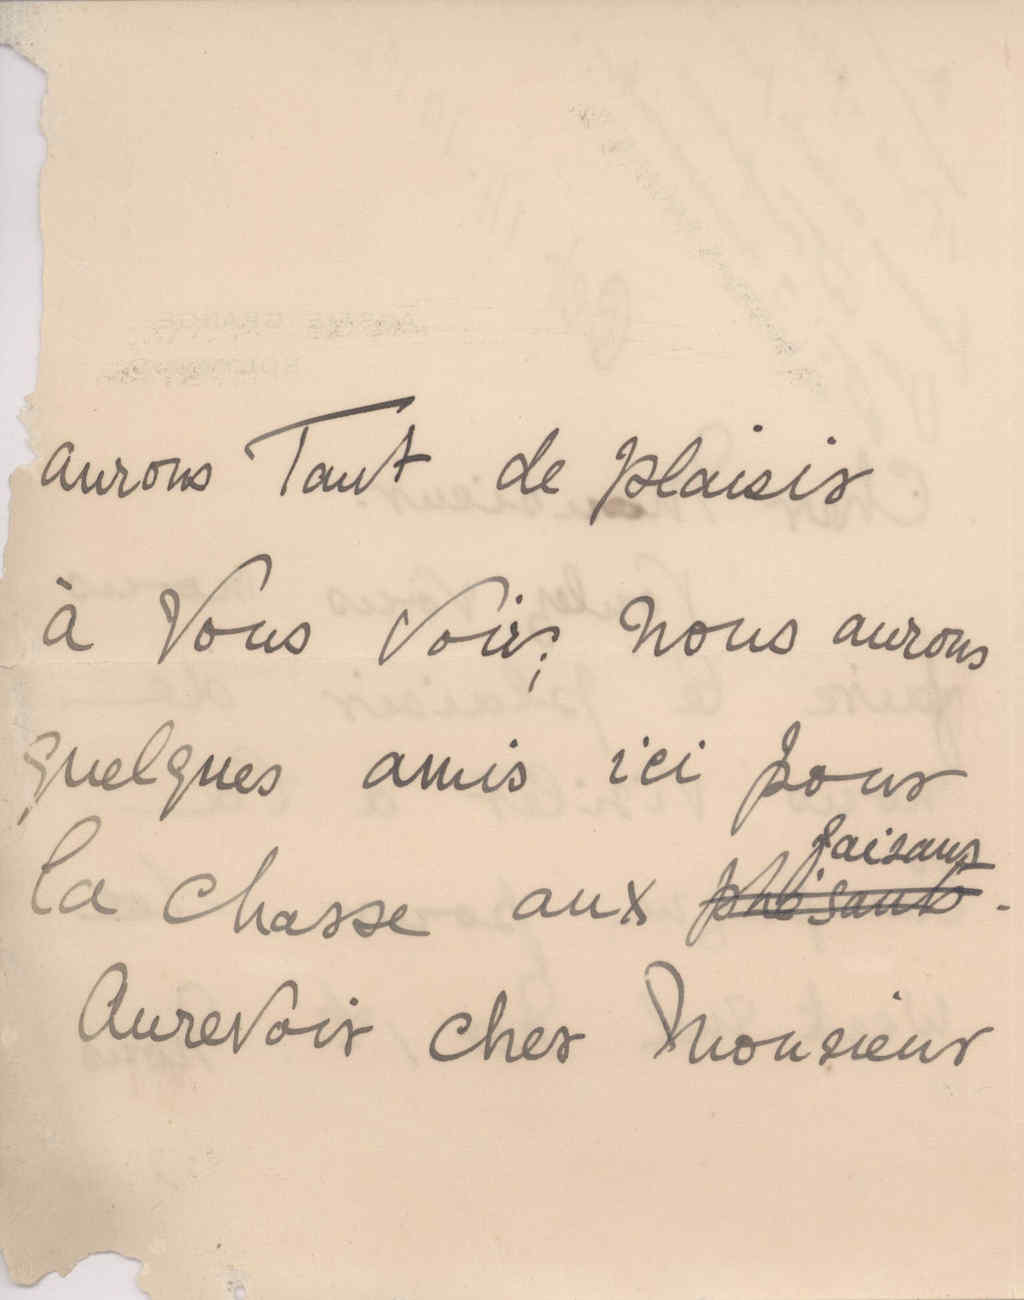 aurons Tant de plaisir
à Vous Voir; nous aurons
quelques amis ici pour
faisans
la chasse aux phésants.
Aurevoir cher Monsieur